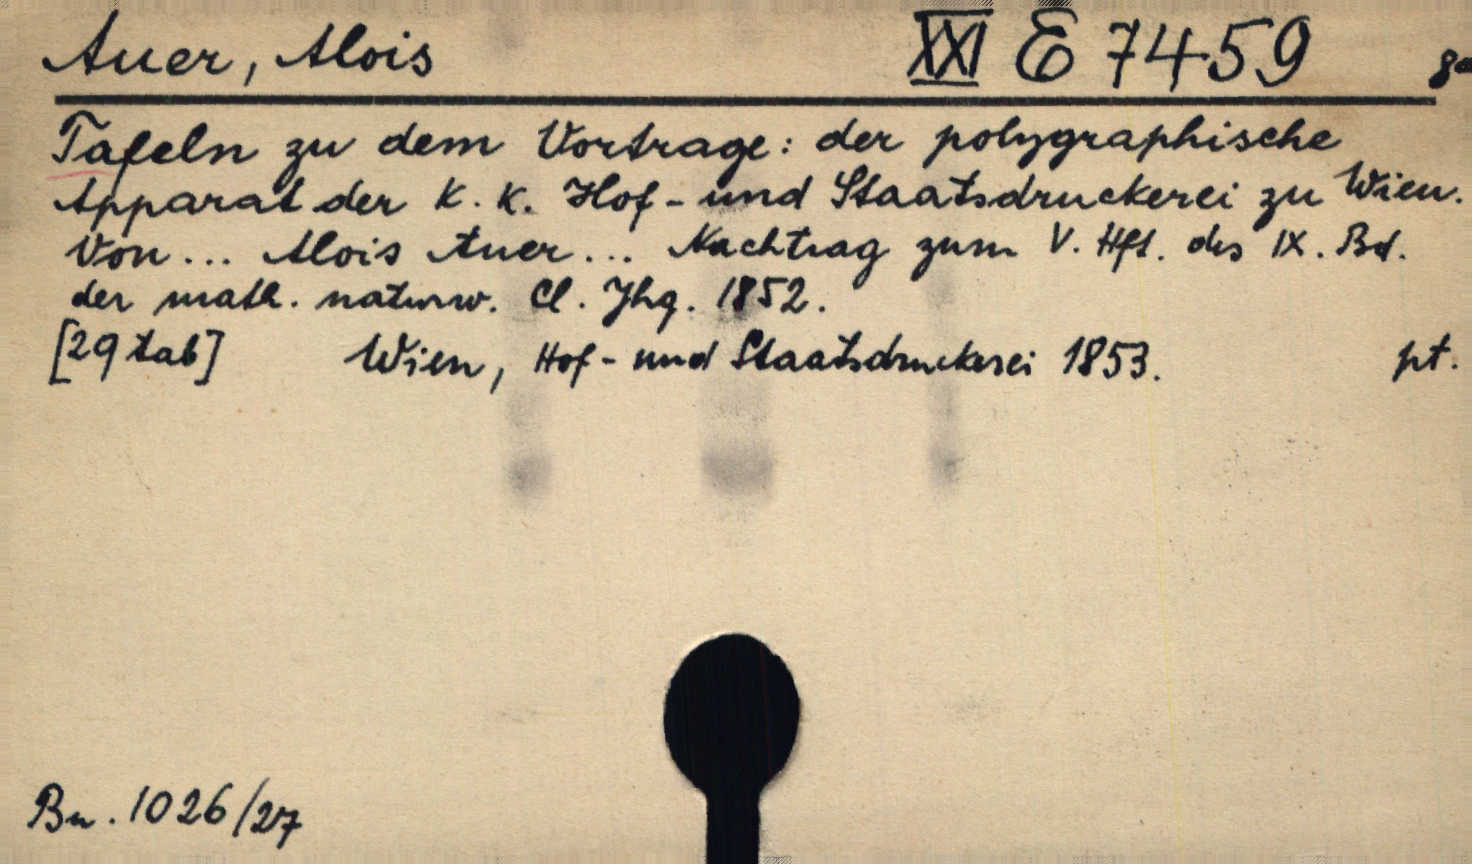 Auer, Alois XXI E 7459 8°
Tafeln zu dem Vortrage: der polygraphische
Apparat der k. k. Hof- und Staatsdruckerei zu Wien.
Von... Alois Auer... Nachtrag zum V. Hft. des IX. Bd.
der math. naturw. Cl. Jhg. 1852.
[29 tab] Wien, Hof- und Staatsdruckerei 1853. pt.
Bn. 1026/27